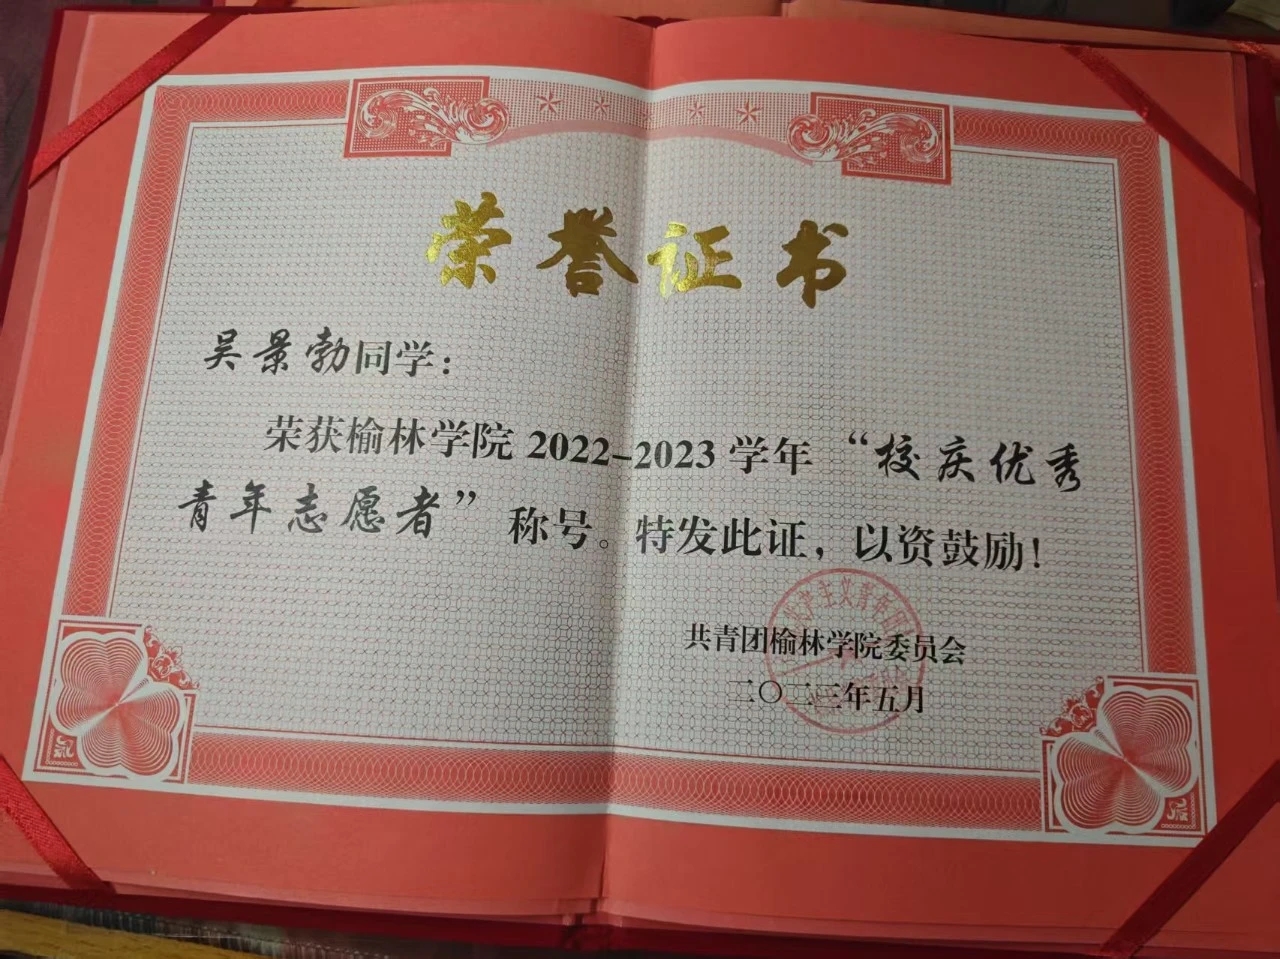 荣誉证书
吴景勃同学：
荣获榆林学院2022-2023学年“校庆优秀
青年志愿者”称号。特发此证，以资鼓励！
共青团榆林学院委员会
二〇二三年五月